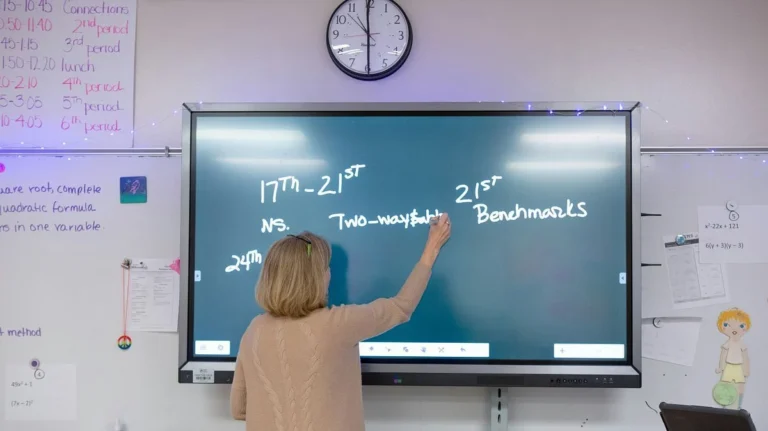 :15-10:45 Connections
0:50-11:40 2nd period
:45-1:15 3rd period
1:50-12:20 lunch
0-2:10 4th period
5-3:05 5th period
10-4:05 6th period
uare root, complete
quadratic formula
in one variable
t method
17Th - 21ST
NS. Two-way
24Th
21ST
Benchmarks
x²-22x + 121
6(y + 3)(y − 3)